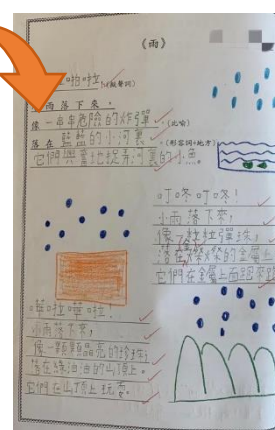 《雨》
啦啪啦,(狀聲詞)
雨落下來,
像一串串危險的炸彈,(比喻)
落在藍藍的小河裏,(形容詞+地方)
它們興奮地玩弄河裏的小魚。
叮咚叮咚!
小雨落下來,
像一粒粒彈珠,
落在
的金屬
它們在金屬上面
嘩啦嘩啦!
小雨落下來,
像一顆顆晶亮的珍珠,
落在綠油油的山頂上。
它們在山頂上玩耍。